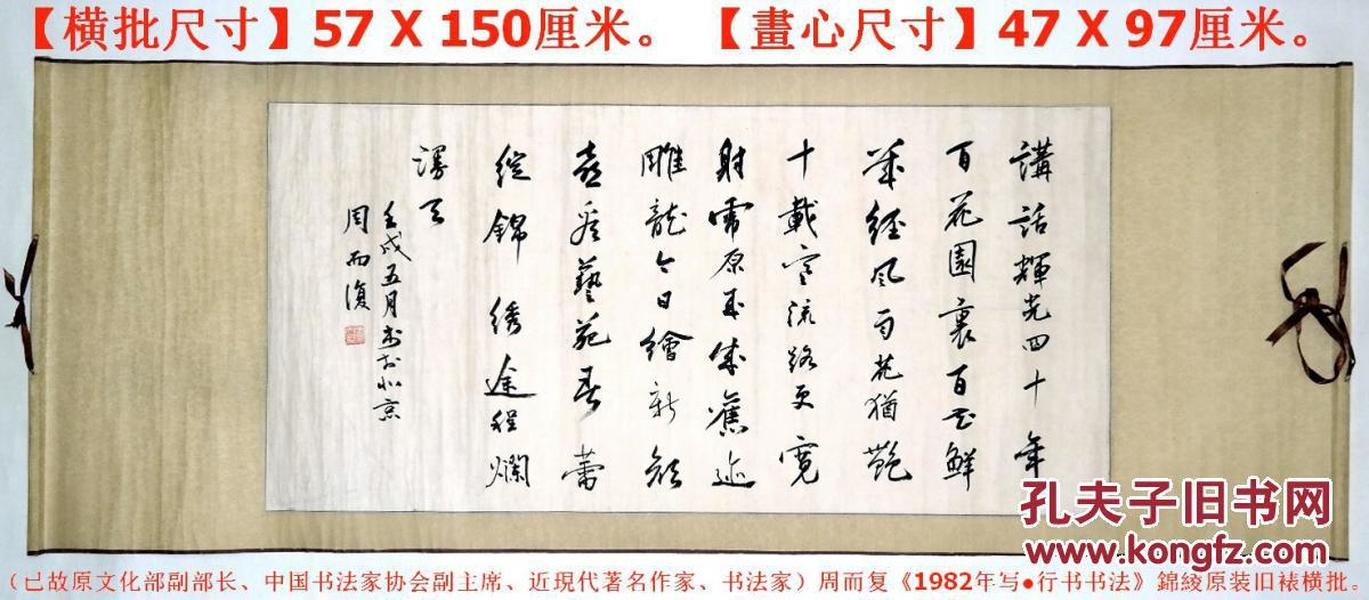 【横批尺寸】57 X 150厘米。 【畫心尺寸】47 X 97厘米。
講話輝光四十年
百花園裏百花鮮
幾經風雨花猶艷
十載寒流路更寬
射虎原來成舊迹
雕龍今日繪新顏
喜看藝苑春蕾
綻錦綉途程爛
漫天
壬戌五月书於北京
周而復
孔夫子旧书网
www.kongfz.com
（已故原文化部副部长、中国书法家协会副主席、近現代著名作家、书法家）周而复《1982年写●行书书法》錦綾原装旧裱横批。